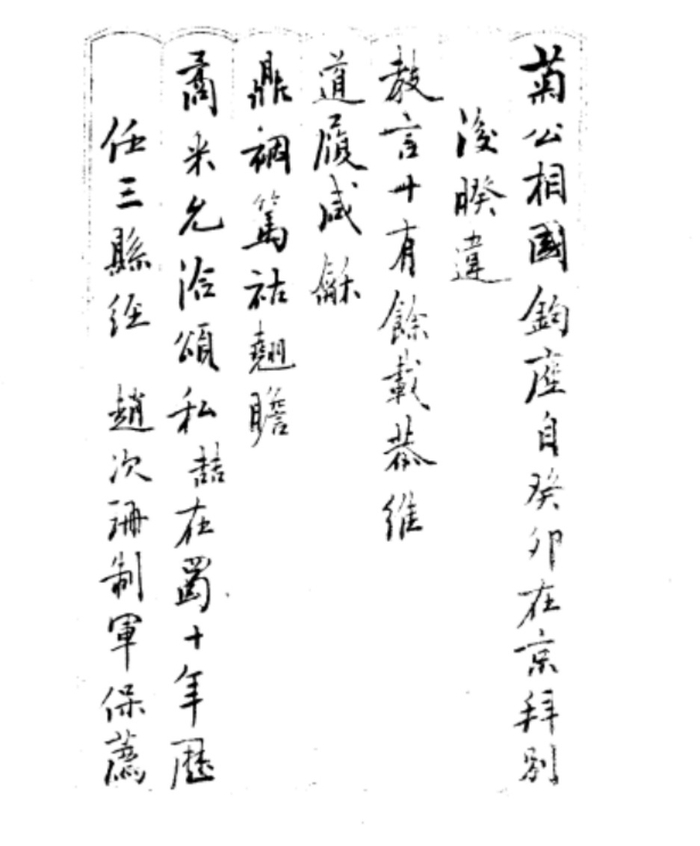 菊公相國鈞座自癸卯在京拜別
後暌違
教言十有餘載恭維
道履咸龢
鼎祻篤祜翹瞻
喬米允洽頌私喆在蜀十年歷
任三縣經 趙次珊制軍保薦